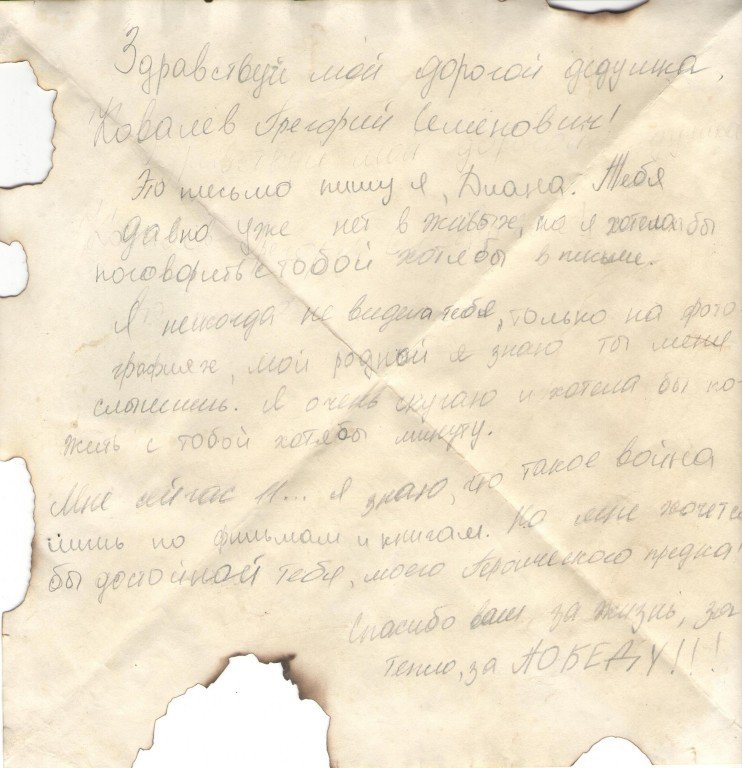 Здравствуй мой дорогой дедушка,
Ковалев Григорий Семенович!
Это письмо пишу я, Диана. Тебя
давно уже нет в живых, но я хотела бы
поговорить с тобой хотябы в письме.
Я никогда не видела тебя, только на фото
графиях, мой родной я знаю ты меня
слышишь. Я очень скучаю и хотела бы по-
жить с тобой хотябы минуту.
Мне сейчас 11... я знаю, что такое война
лишь по фильмам и книгам. Но мне хочется
бы достойной тебя, моего Героического предка!
Спасибо вам, за жизнь, за
тепло, за ПОБЕДУ!!!